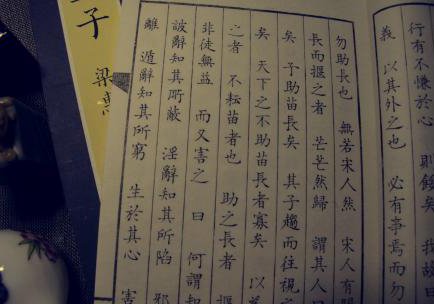 行有不慊於心 則餒矣 我故曰
義 以其外之也 必有事焉而勿
勿助長也 無若宋人然 宋人有
長而揠之者 芒芒然歸 謂其人
矣 予助苗長矣 其子趨而往視
矣 天下之不助苗長者寡矣 以
之者 不耘苗者也 助之長者 揠
非徒無益 而又害之 曰 何謂知
詖辭知其所蔽 淫辭知其所陷 邪
離 遁辭知其所窮 生於其心 害
子
梁惠